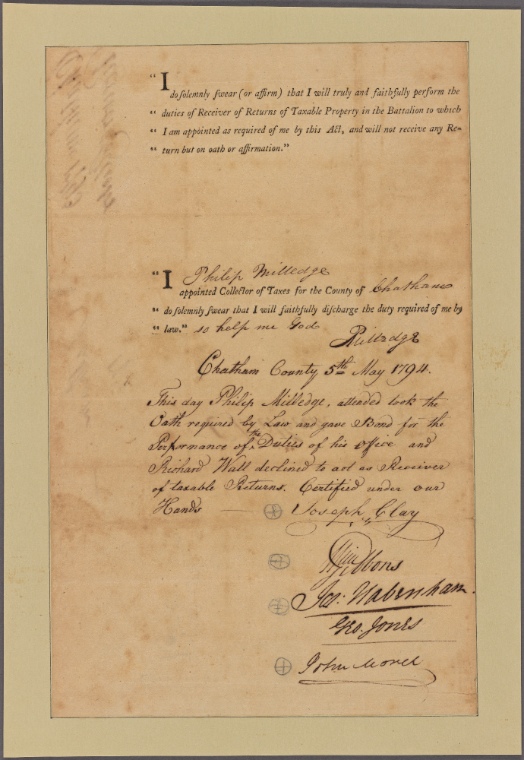 "I
do solemnly swear (or affirm) that I will truly and faithfully perform the
" duties of Receiver of Returns of Taxable Property in the Battalion to which
" I am appointed as required of me by this Act, and will not receive any Re-
" turn but on oath or affirmation."
"I Philip Milledge
appointed Collector of Taxes for the County of Chatham
" do solemnly swear that I will faithfully discharge the duty required of me by
" law." so help me God
PMilledge
Chatham County 5th May 1794.
This day Philip Milledge, attended took the
Oath required by Law and gave Bond for the
Performance of the Duties of his office and
Richard Wall declined to act as Receiver
of taxable Returns. Certified under our
Hands
Joseph Clay
Gibbons
Jas: Habersham
Geo. Jones
John Morel